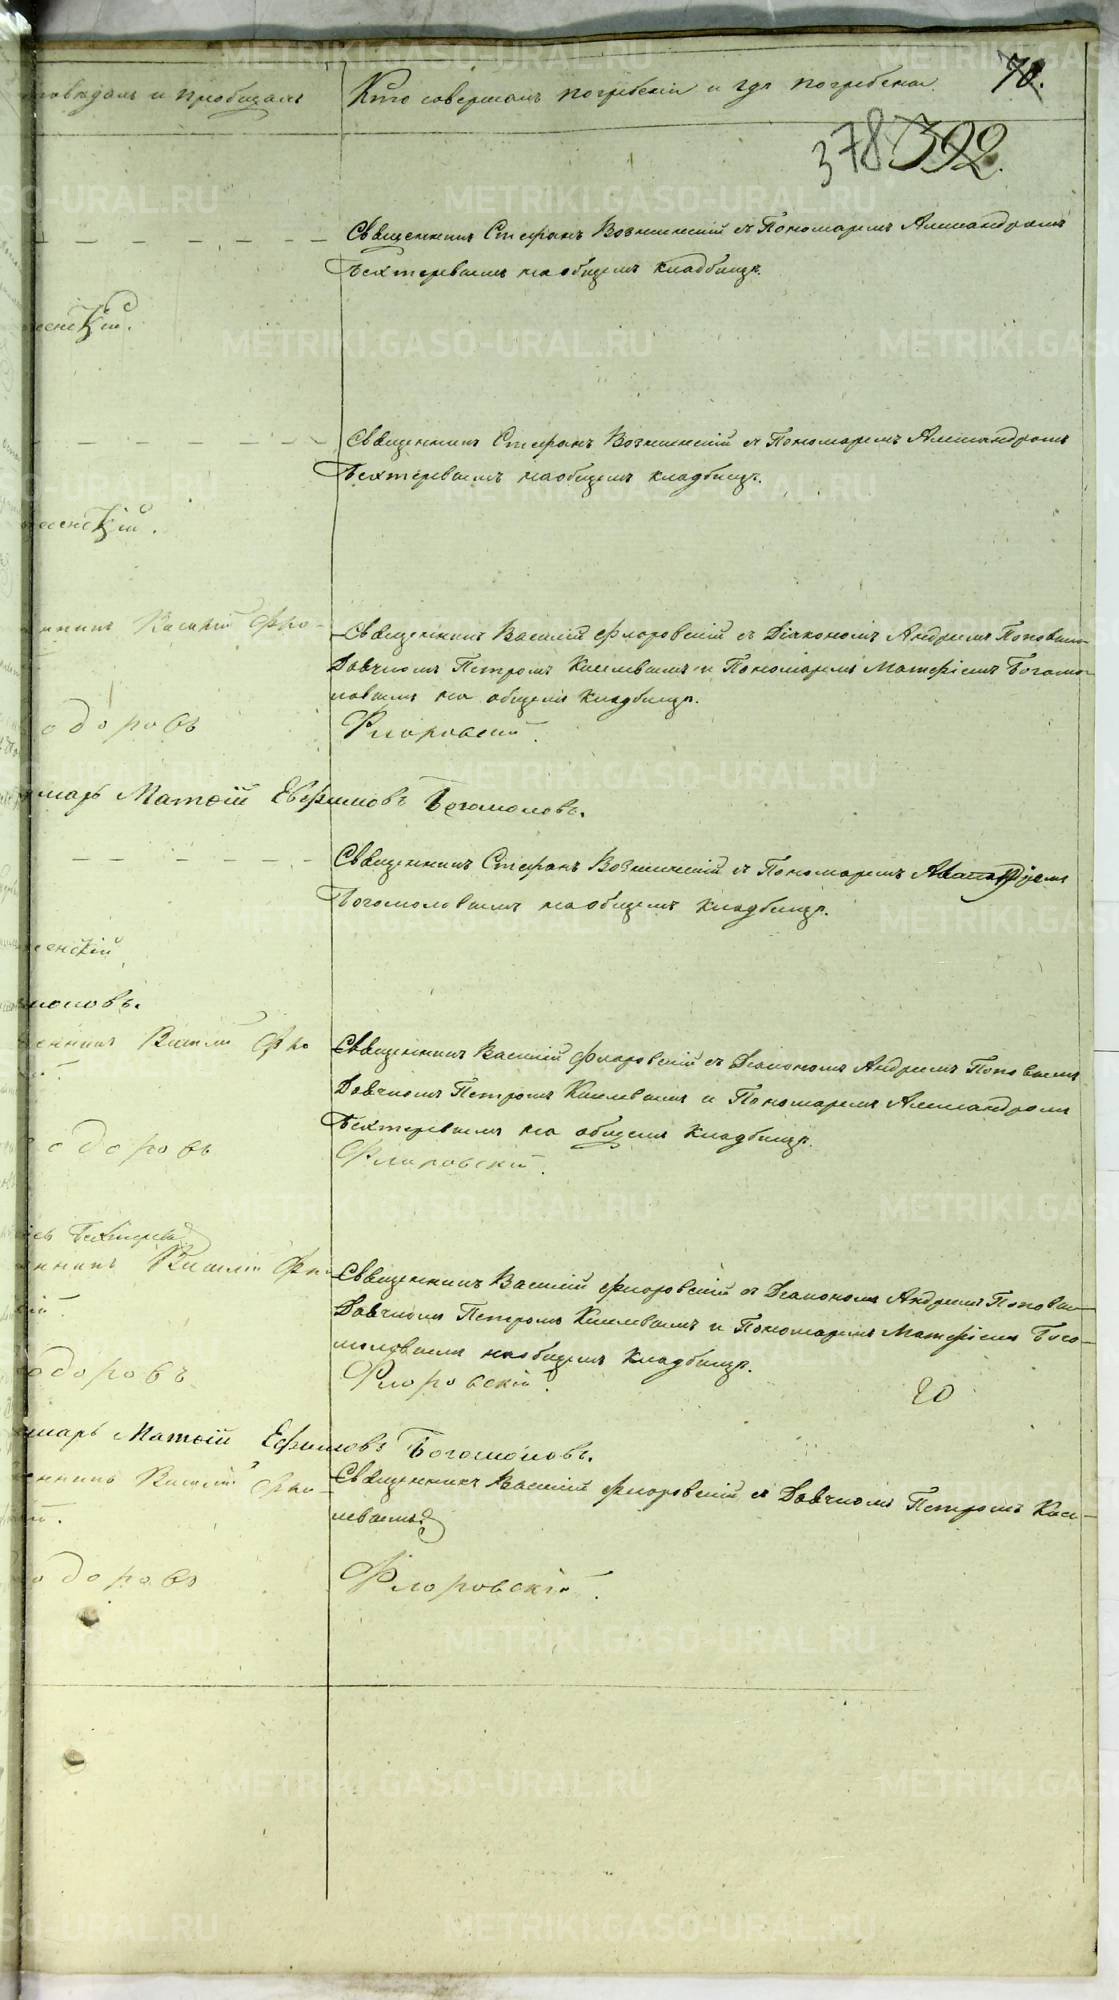 Кто совершалъ погребенiе и гдѣ погребены.
70.
378 392.
Священникъ Стефанъ Вознесенскiй съ Пономаремъ Александромъ
Бехтеревымъ на общемъ кладбищѣ.
Священникъ Стефанъ Вознесенскiй съ Пономаремъ Александромъ
Бехтеревымъ на общемъ кладбищѣ.
Священникъ Василiй Флоровскiй съ Дiакономъ Андреемъ Поповымъ
Дьячкомъ Петромъ Киселевымъ и Пономаремъ Матѳiемъ Богомо-
ловымъ на общемъ кладбищѣ.
одоровъ
Флоровскiй.
марь Матѳiй Евѳимовъ Богомоловъ.
Священникъ Стефанъ Вознесенскiй съ Пономаремъ
Богомоловымъ на общемъ кладбищѣ.
Священникъ Василiй Флоровскiй съ Дiакономъ Андреемъ Поповымъ
Дьячкомъ Петромъ Киселевымъ и Пономаремъ Александромъ
Бехтеревымъ на общемъ кладбищѣ.
одоровъ
Флоровскiй.
Священникъ Василiй Флоровскiй съ Дiакономъ Андреемъ Поповым
Дьячкомъ Петромъ Киселевымъ и Пономаремъ Матѳiемъ Бого-
моловымъ на общемъ кладбищѣ.
одоровъ
Флоровскiй.
20
марь Матѳiй Ефимовъ Богомоловъ.
Священникъ Василiй Флоровскiй съ Дьячкомъ Петромъ Кисе-
левымъ
одоровъ
Флоровскiй.
METRIKI.GASO-URAL.RU